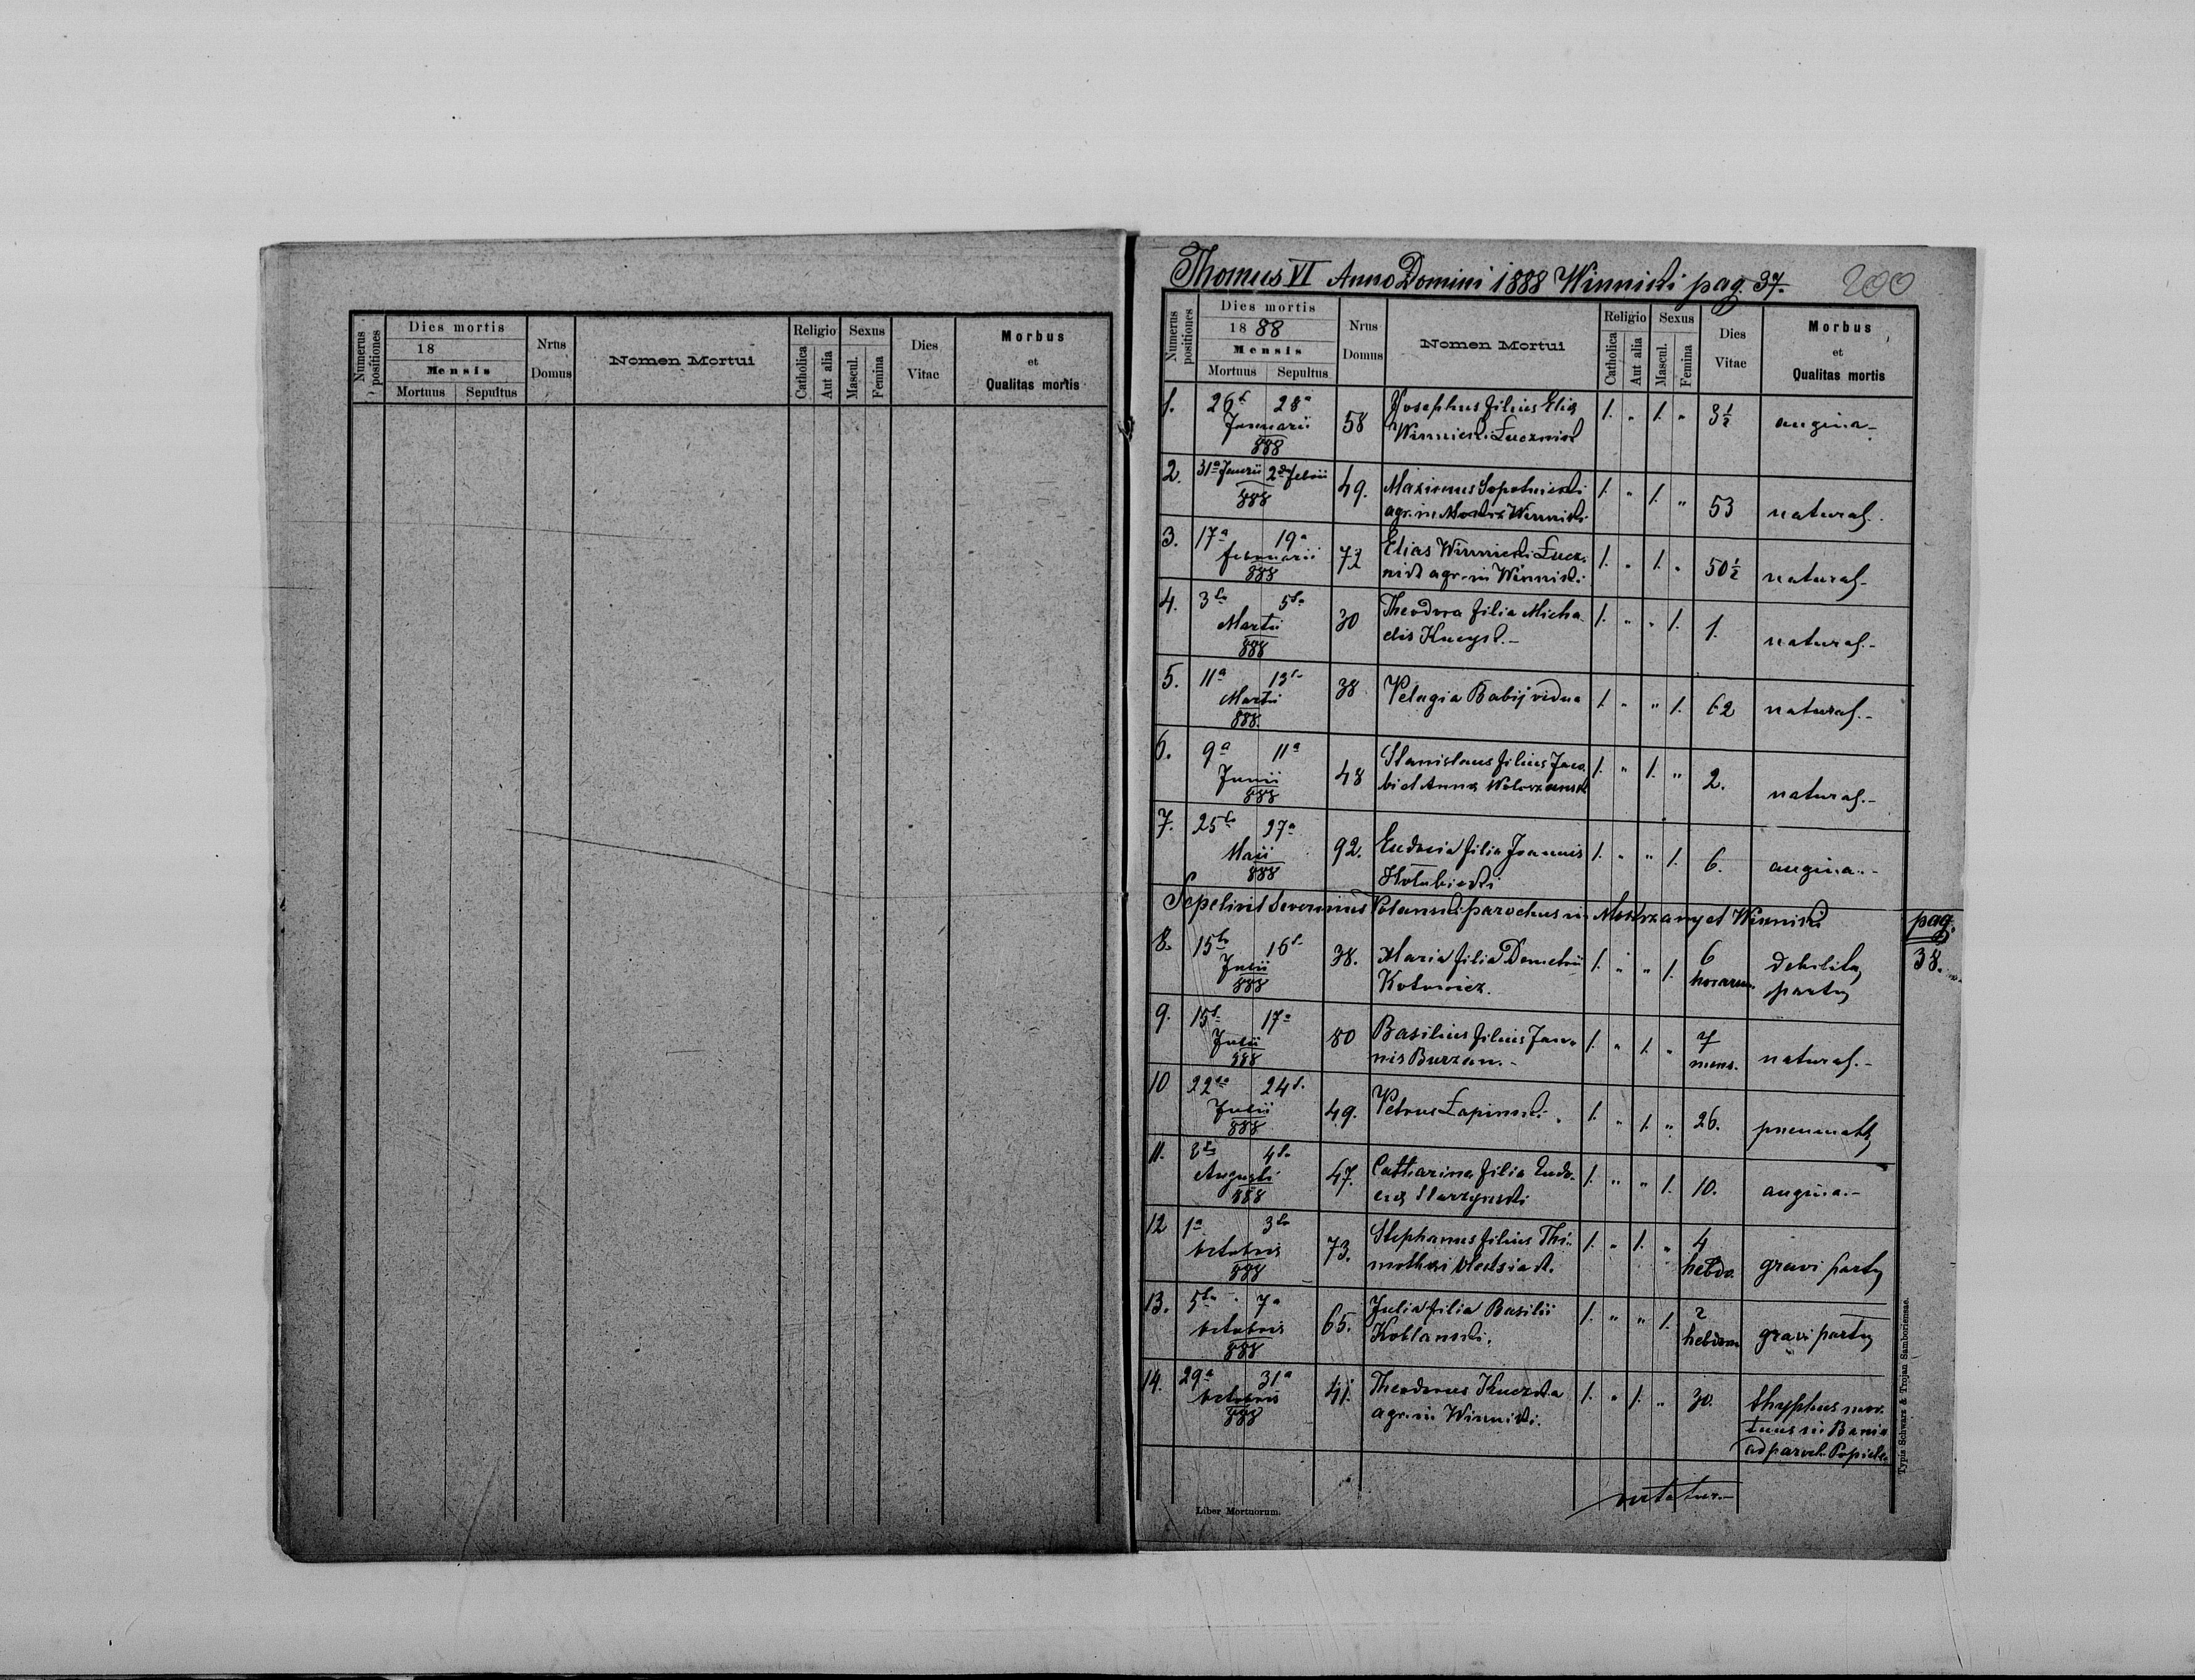 Numerus positiones
Dies mortis
18
Mensis
Mortuus Sepultus
Nrus Domus
Nomen Mortui
Religio
Catholica
Aut alia
Sexus
Mascul.
Femina
Dies Vitae
Morbus
et
Qualitas mortis
Thomus VI Anno Domini 1888 Winniki pag. 37. 200
Numerus positiones
Dies mortis
18 88
Mensis
Mortuus Sepultus
Nrus Domus
Nomen Mortui
Religio
Catholica
Aut alia
Sexus
Mascul.
Femina
Dies Vitae
Morbus
et
Qualitas mortis
1. 26 28a 58 Josephus filius Elia 1. " 1. " 3 1/2 angina-
Januarii Winnicki Łucznik
888
2. 31a Januarii 2da febrii 49. Maximus Sopotnicki 1. " 1. " 53 natural.
888 agr. in Winniki
3. 17a 19a 72 Elias Winnicki Łucz- 1. " 1. " 50 1/2 natural-
februarii nik agr. in Winniki
888
4. 3tia 5ta 30 Theodora filia Micha 1. " " 1. 1. natural.-
Martii elis
888
5. 11a 13 38 Pelagia Babij vidua 1. " " 1. 62 natural.-
Martii
888.
6. 9a 11a 48 Stanislaus filius Jaco 1. " 1. " 2. natural.-
Junii bi et Anna
888
7. 25ta 27a 92. Eudocia filia Joannis 1. " " 1. 6. angina.-
Maii Hołubicki
888
Sepelivit Severinus Polanski parochus in Mokrzany et Winniki pag.
38.
8. 15ta 16 38. Maria filia Demetrii 1. " " 1. 6 debilita
Julii Kotowicz. horarum. partu
888
9. 15 17a 80 Basilius filius Joan- 1. " 1. " 7 natural.-
Julii nis Burzan.- mens.
888
10 22da 24 49. Petrus Łapinski. 1. " 1. " 26.
Julii
888
11. 2da 4ta 47. Catharina filia Eudo- 1. " " 1. 10. angina.-
Augusti cia Starzynski
888
12 1a 3tia 73. Stephanus filius Thi- 1. " 1. " 4 gravi partu
octobris mothei hebdo.
888
13. 5ta 7a 65. Julia filia Basilii 1. " " 1. 2 gravi partu
octobris Koblanski. hebdom
888
14. 29a 31a 41. Theodorus Kuczda 1. " 1. " 30. thyphus mor-
octobris agr. in Winniki. tuus in Bania
888 ad paroch. Popiele.
Liber Mortuorum.
Typis Schwarz & Trojan Samboriensae.